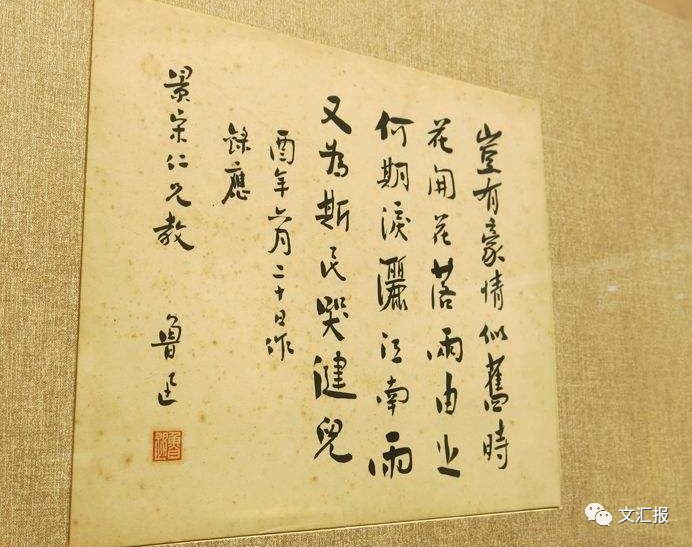 豈有豪情似舊時
花開花落兩由之
何期淚灑江南雨
又為斯民哭健兒
酉年六月二十日作
錄應
景宋仁兄教
魯迅
魯迅
文汇报